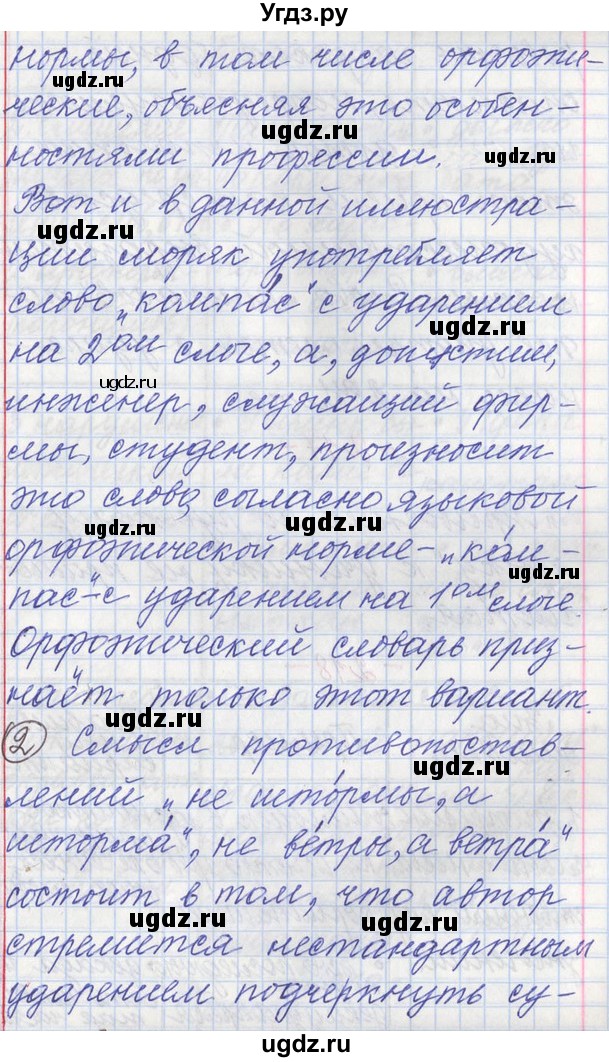 Угдз.ру
нормы, в том числе орфоэпи-
ugdz.ru
ческие, объясняя это особен-
ugdz.ru
ностями профессии.
ugdz.ru
Вот и в данной иллюстра-
ugdz.ru
ции моряк употребляет
ugdz.ru
слово „компа́с" с ударением
на 2ом слоге, а, допустим,
ugdz.ru
инженер, служащий фир-
ugdz.ru
мы, студент, произносит
это слово согласно языковой
ugdz.ru ugdz.ru
орфоэпической норме - „ко́м-
пас" - с ударением на 1ом слоге.
ugdz.ru
Орфоэпический словарь приз-
ugdz.ru
наёт только этот вариант.
ugdz.ru
2 Смысл противопостав-
ugdz.ru
лений „не што́рмы, а
шторма́", не ве́тры, а ветра́"
ugdz.ru
состоит в том, что автор
ugdz.ru
стремится нестандартным
ugdz.ru
ударением подчеркнуть су-
ugdz.ru